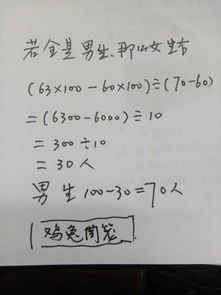 若全是男生，那么女生有
(63×100-60×100)÷(70-60)
=(6300-6000)÷10
=300÷10
=30人
男生100-30=70人
鸡兔同笼